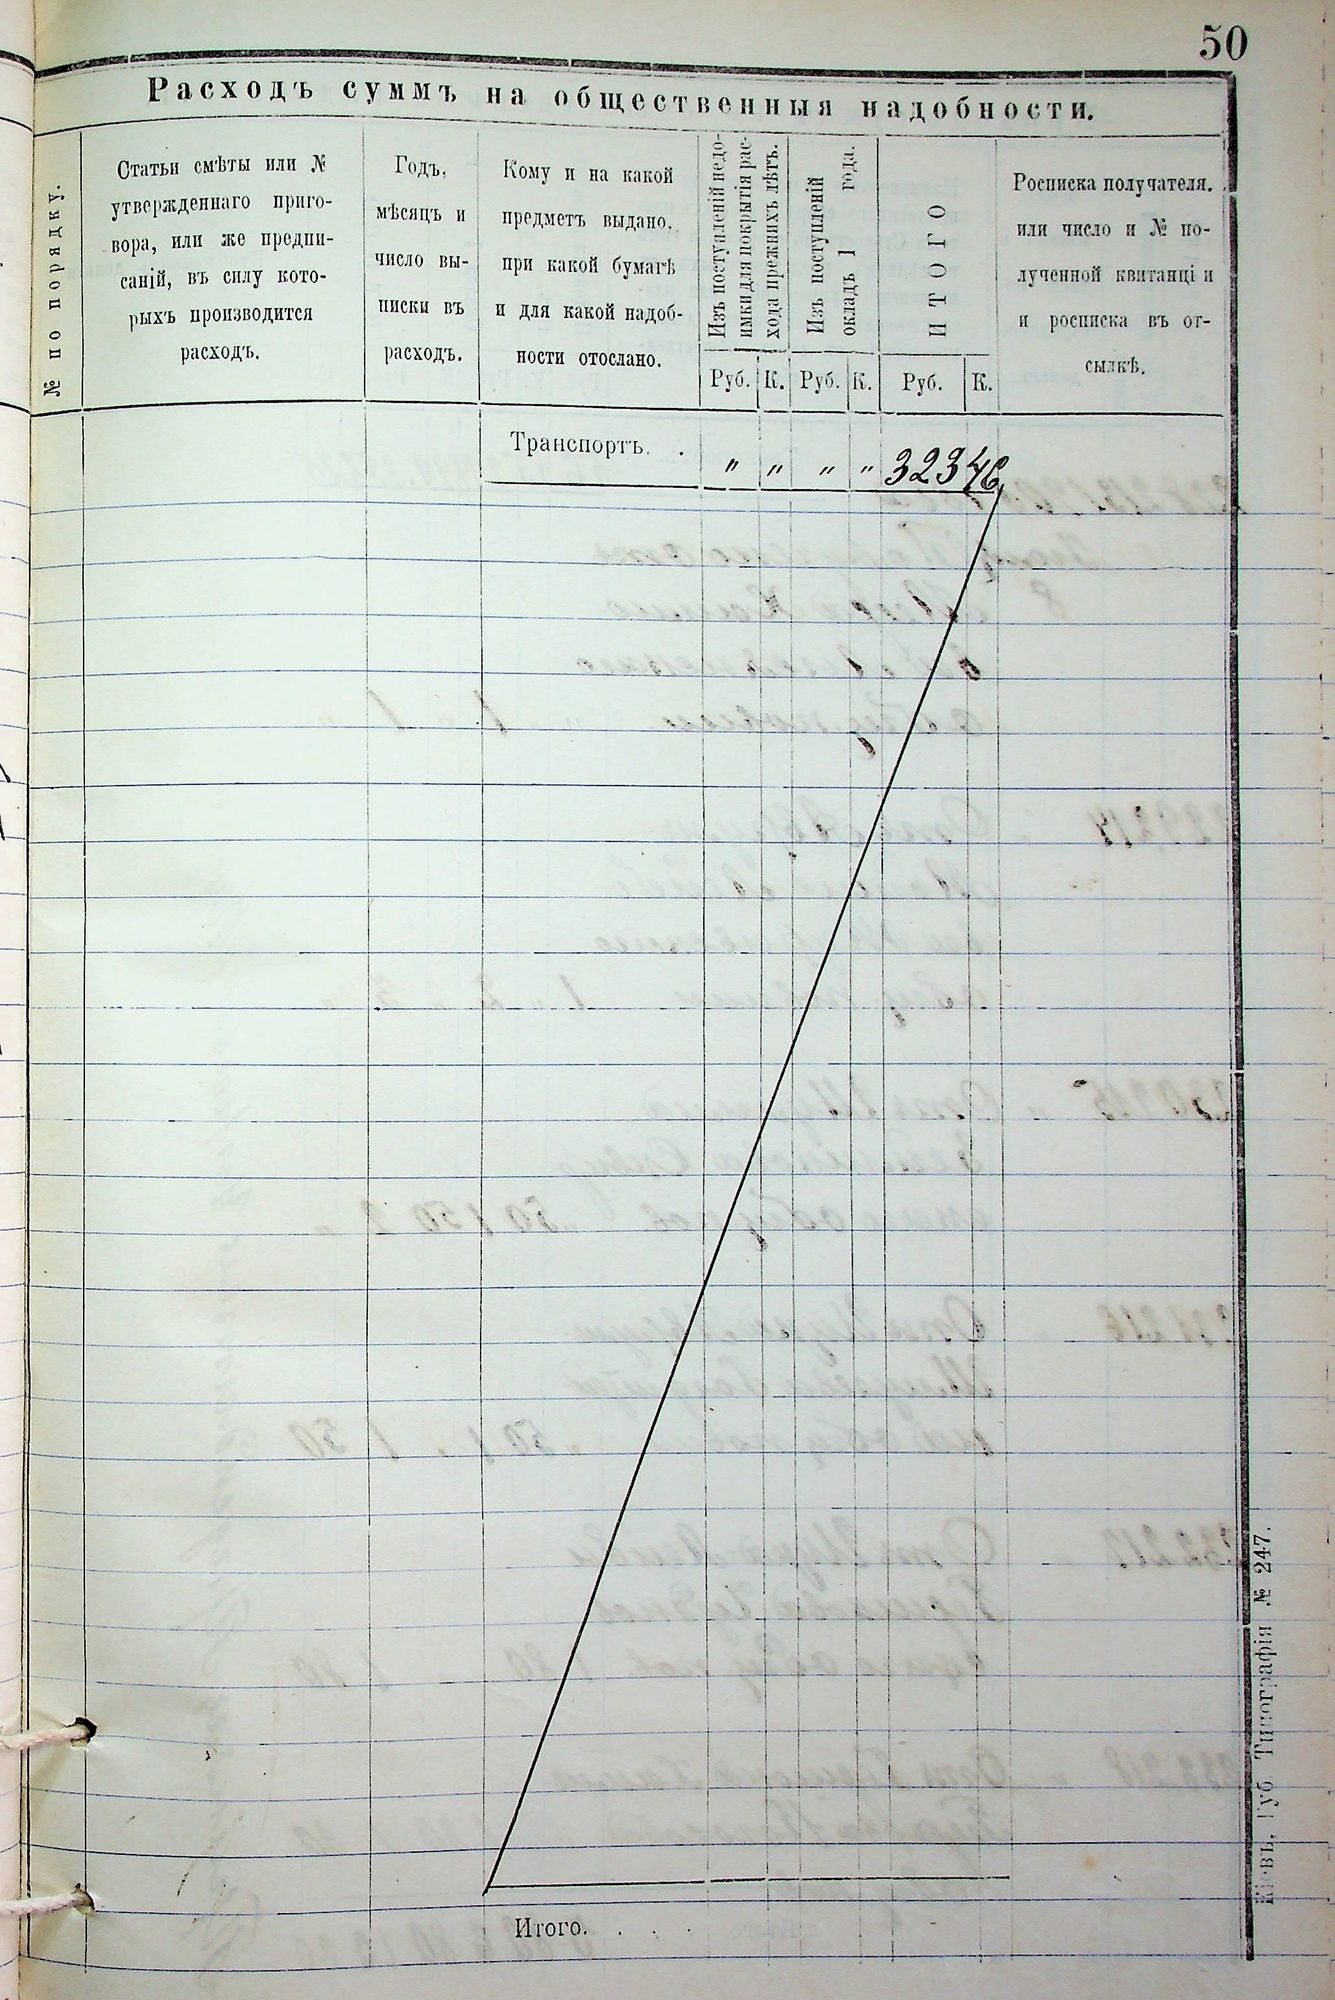 50
Расходъ суммъ на общественныя надобности.
№ по порядку.
Статьи смѣты или №
утвержденнаго приго-
вора, или же предпи-
саній, въ силу кото-
рыхъ производится
расходъ.
Годъ,
мѣсяцъ и
число вы-
писки въ
расходъ.
Кому и на какой
предметъ выдано,
при какой бумагѣ
и для какой надоб-
ности отослано.
Изъ поступленій недо-
имки для покрытія рас-
хода прежнихъ лѣтъ.
Изъ поступленій
окладъ 1 года.
ИТОГО
Росписка получателя.
или число и № по-
лученной квитанці и
и росписка въ от-
сылкѣ.
Руб. К. Руб. К. Руб. К.
Транспортъ. . " " " " 323 46
Итого. . . .
Кіевъ, Губ. Типографія № 247.